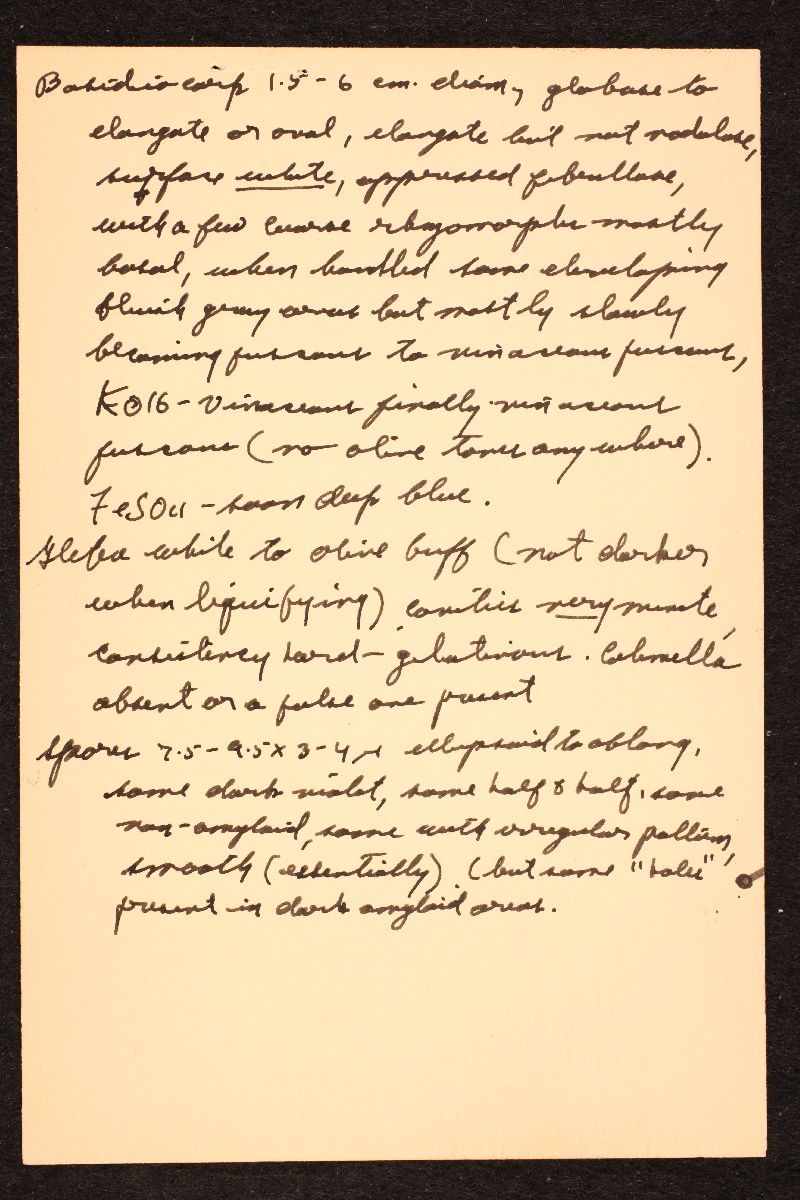 Basidiocarp 1.5-6 cm. diam, globose to
elongate or oval, elongate but not nodulose,
surface white, appressed fibrillose,
with a few coarse rhizomorphs mostly
basal, when handled some developing
bluish gray areas but mostly slowly
becoming fuscous to vinaceous fuscous,
KOH - vinaceous finally vinaceous
fuscous (no olive tones anywhere).
FeSO4 - soon deep blue.
Gleba white to olive buff (not darker
when liquifying) cavities very minute,
consistency hard-gelatinous. Columella
absent or a false one present
Spores 7.5-9.5 x 3-4 µ ellipsoid to oblong,
some dark violet, some half & half, some
non-amyloid, some with irregular patterns,
smooth (essentially) (but some "holes"
present in dark amyloid areas.